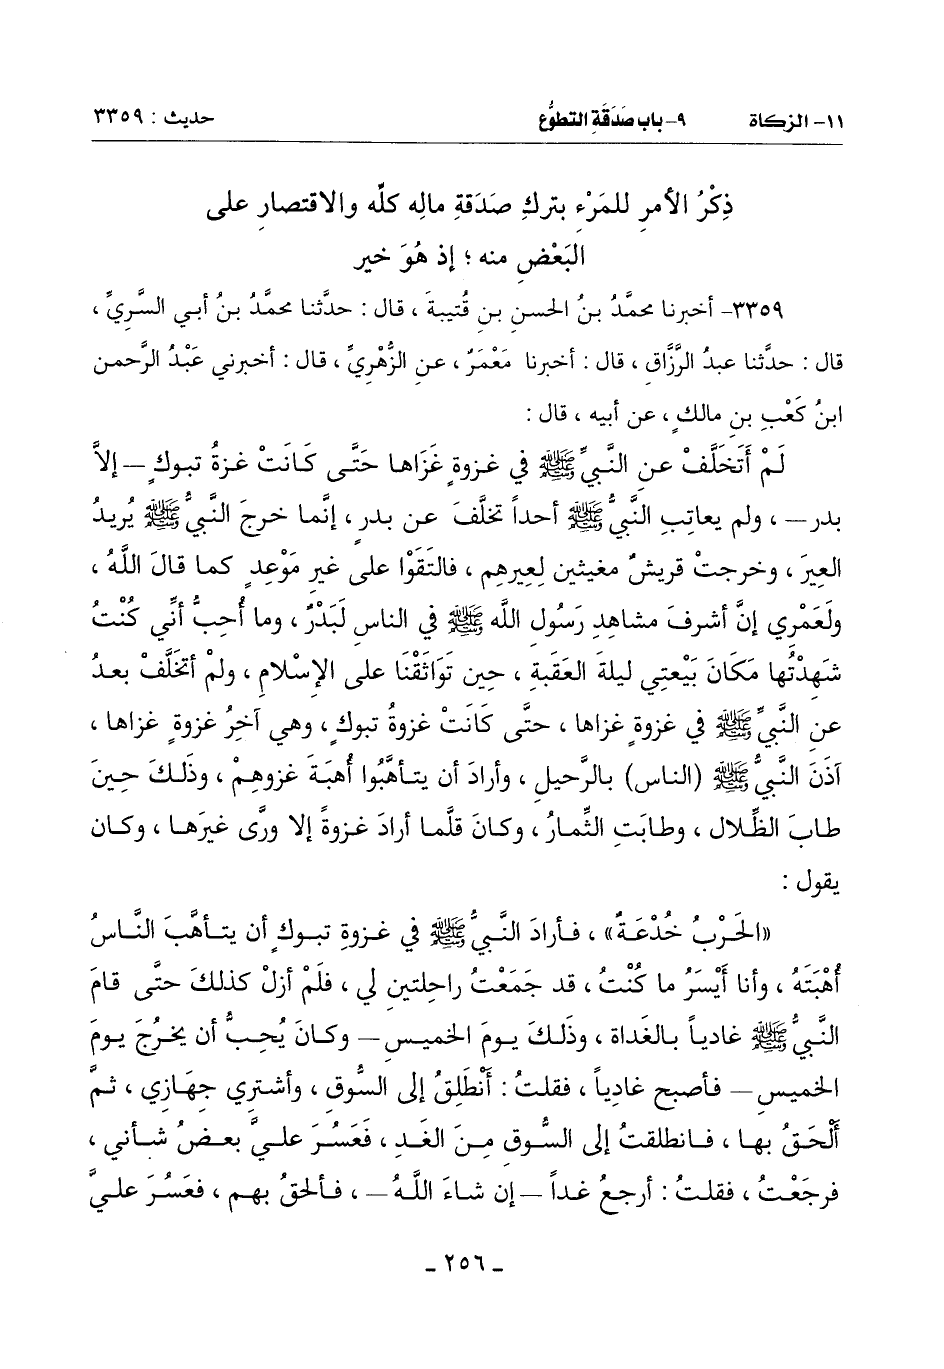 ١١- الزكاة ٩- باب صَدَقَةِ التطوُّع حديث : ٣٣٥٩
ذِكْرُ الأمرِ للمَرْءِ بتركِ صَدَقةِ مالِه كلِّه والاقتصارِ على
البَعْضِ منه ؛ إذ هُوَ خير
٣٣٥٩- أخبرنا محمَّدُ بنُ الحسنِ بنِ قُتيبةَ ، قال : حدَّثنا محمَّدُ بنُ أبي السَّريِّ ،
قال : حدَّثنا عبدُ الرَّزَّاقِ ، قال : أخبرنا مَعْمَرٌ ، عنِ الزُّهْريِّ ، قال : أخبرني عَبْدُ الرَّحمن
ابنُ كَعْبِ بنِ مالكٍ ، عن أبيه ، قال :
لَمْ أَتَخَلَّفْ عنِ النَّبيِّ ﷺ في غزوةٍ غَزَاها حَتَّى كَانَتْ غزةُ تبوكٍ — إلاَّ
بدر — ، ولم يعاتِبِ النَّبيُّ ﷺ أحداً تخلَّفَ عن بدرٍ ، إنَّما خرجَ النَّبيُّ ﷺ يُريدُ
العيرَ ، وخرجتْ قريشٌ مغيثين لِعِيرهِم ، فالتَقَوْا على غيرِ مَوْعِدٍ كما قالَ اللَّهُ ،
ولَعَمْري إنَّ أشرفَ مشاهدِ رَسُولِ اللَّه ﷺ في الناس لَبَدْرٌ ، وما أُحِبُّ أنِّي كُنْتُ
شَهِدْتُها مَكَانَ بَيْعتِي ليلةَ العَقَبةِ ، حِين تَوَاثَقْنَا على الإسْلامِ ، ولمْ أتخَلَّفْ بعدُ
عن النَّبيِّ ﷺ في غزوةٍ غزاها ، حتَّى كَانَتْ غزوةُ تبوكٍ ، وهي آخِرُ غزوةٍ غزاها ،
آذَنَ النَّبيُّ ﷺ (الناس) بالرَّحيلِ ، وأرادَ أن يتأهَّبُوا أُهبَةَ غزوهِمْ ، وذَلكَ حِينَ
طابَ الظِّلال ، وطابَتِ الثِّمارُ ، وكانَ قلَّما أرادَ غزوةً إلا ورَّى غيرَها ، وكان
يقول :
«الحَرْبُ خُدْعَةٌ» ، فأرادَ النَّبيُّ ﷺ في غزوةِ تبوكٍ أن يتأهَّبَ النَّاسُ
أُهْبَتَهُ ، وأنا أيْسَرُ ما كُنْتُ ، قد جمَعْتُ راحِلتينِ لي ، فلَمْ أزلْ كذلكَ حتَّى قامَ
النَّبيُّ ﷺ غادياً بالغَداة ، وذَلكَ يومَ الخميسِ — وكانَ يُحِبُّ أن يخرُجَ يومَ
الخميسِ — فأصبح غادياً ، فقلتُ : أَنْطَلِقُ إلى السُّوق ، وأشتري جَهَازي ، ثمَّ
أَلْحَقُ بها ، فانطلقتُ إلى السُّوقِ مِنَ الغَدِ ، فَعَسُرَ عليَّ بعضُ شأني ،
فرجَعْتُ ، فقلتُ : أرجعُ غداً — إن شاءَ اللَّهُ — ، فألحقُ بهم ، فعَسُرَ عليَّ
ـ ٢٥٦ ـ